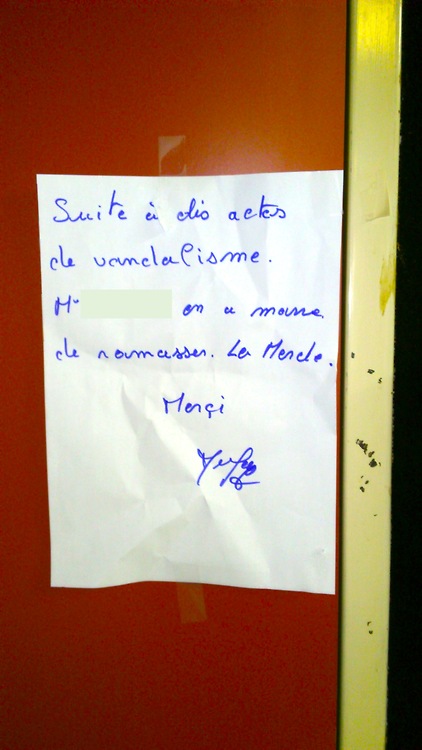 Suite à dis actes
de vandalisme.
Mr en a marre
de ramasser. La Merde.
Merçi